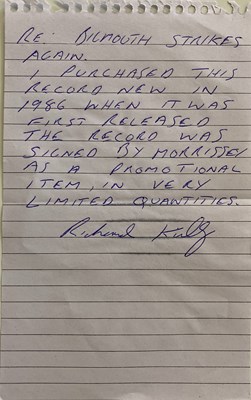 RE: BIGMOUTH STRIKES
AGAIN.
I PURCHASED THIS
RECORD NEW IN
1986 WHEN IT WAS
FIRST RELEASED
THE RECORD WAS
SIGNED BY MORRISSEY
AS A PROMOTIONAL
ITEM, IN VERY
LIMITED QUANTITIES.
Richard